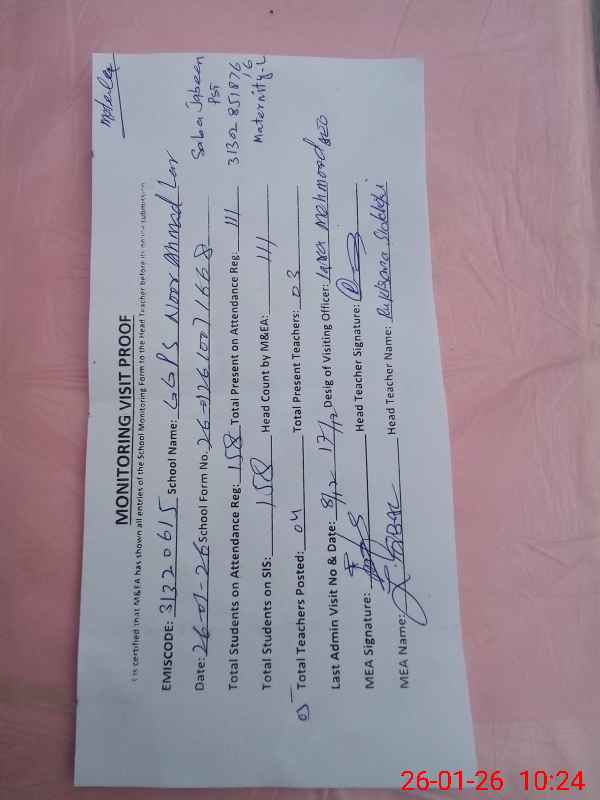 MONITORING VISIT PROOF
It is certified that M&EA has shown all entries of the School Monitoring Form to the Head Teacher before its online submission
EMISCODE: 31320615 School Name: GGPS Noor Ahmad Lar
Date: 26-01-26 School Form No. 26012610071668
Total Students on Attendance Reg: 158 Total Present on Attendance Reg: 111
Total Students on SIS: 158 Head Count by M&EA: 111
03 Total Teachers Posted: 04 Total Present Teachers: 03
Last Admin Visit No & Date: 8/12 17/12 Desig of Visiting Officer: Mehmood AEO
MEA Signature: Head Teacher Signature:
MEA Name: Head Teacher Name: Rukhsana
Saba Jabeen
PST
31302 851876
16
Maternity-L
26-01-26 10:24